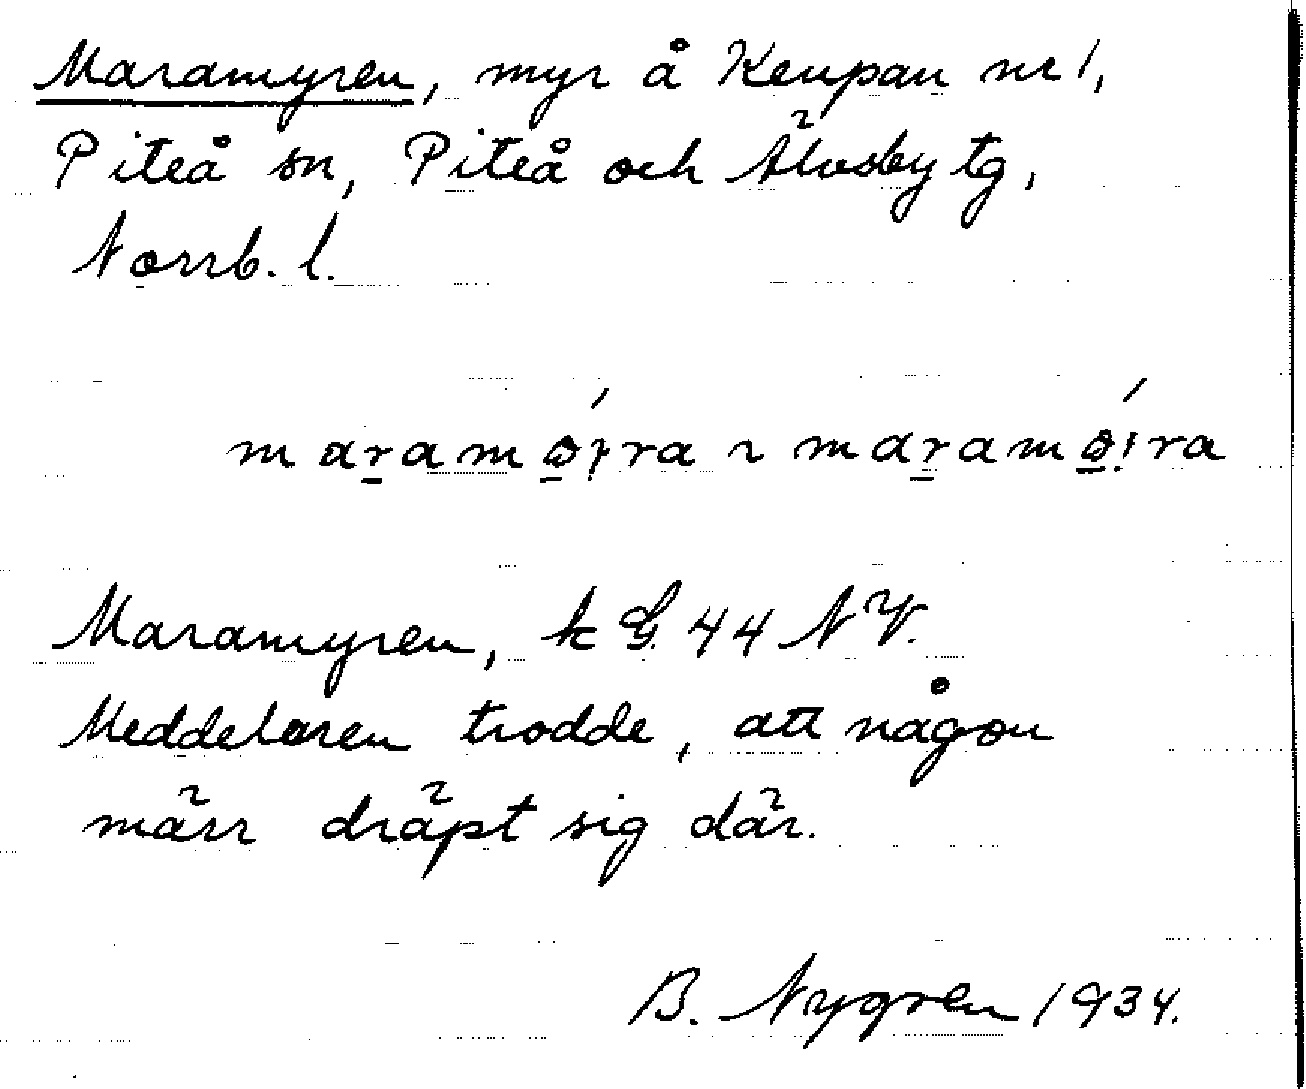 Maramyren, myr å Keupan nr 1,
Piteå sn, Piteå och Älvsby tg,
Norrb. l.
maramǿ̱i̯ra ~ maramǿ̱i̯ra
Maramyren, k G. 44 NV.
Meddelaren trodde, att någon
märr dräpt sig där.
B. Nygren 1934.